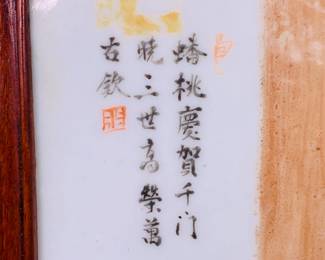 蟠桃慶賀千门
曉三世高榮萬
古欽